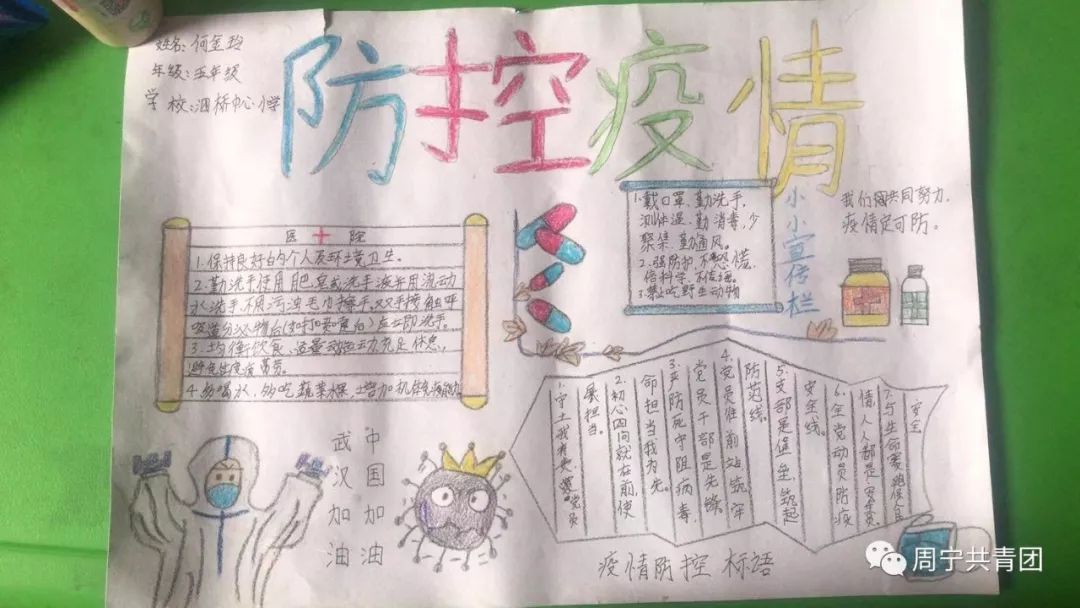 姓名:何金玲
年级:五年级
学校:泗桥中心小学
防控疫情
医十院
1.保持良好的个人及环境卫生。
2.勤洗手使用肥皂或洗手液并用流动
水洗手,不用污浊毛巾擦手,双手接触呼
吸道分泌物后(如打喷嚏后)应立即洗手。
3.均衡饮食、适量运动充足休息,
避免过度疲劳。
4.多喝水,多吃蔬菜水果,增加机体免疫能力
1.戴口罩、勤洗手,
测体温、勤消毒,少
聚集、勤通风。
2.强防护,不恐慌,
信科学,不信谣。
3.禁止吃野生动物
小小宣传栏
我们共同努力,
疫情定可防。
武汉加油
中国加油
1.守土我有责,党员
展担当。
2.初心四问就在前,使
命担当我为先。
3.严防死守阻病毒,
党员干部是先锋。
4.党员在前站,筑牢
防范线。
5.支部是堡垒,筑起
安全线。
6.全党动员防疫
情,人人都是
7.与生命赛跑
安全
疫情防控 标语
周宁共青团